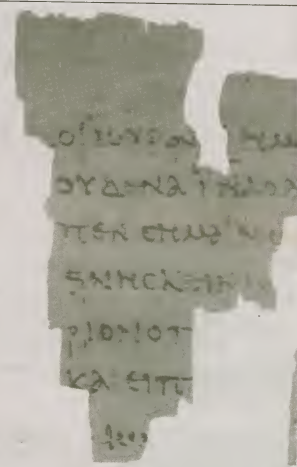 ΟΙ ΙΟΥΔΑΙ ΗΜΕ
ΟΥΔΕΝΑ ΙΝΑ Ο Λ
ΠΕΝ CΗΜΑΙΝω
ΘΝΗCΚΕΙΝ Ι
ΡΙΟΝ Ο Π
ΚΑΙ ΕΙΠ